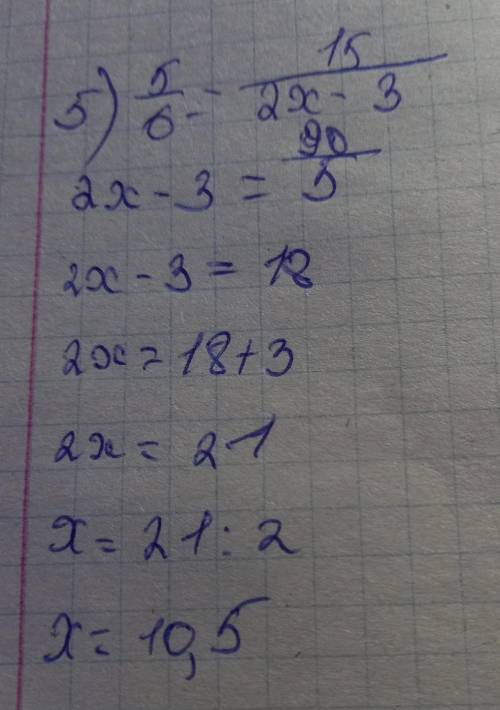 5) 5/6 = 15/(2x - 3)
2x - 3 = 90/5
2x - 3 = 18
2x = 18 + 3
2x = 21
x = 21 : 2
x = 10,5